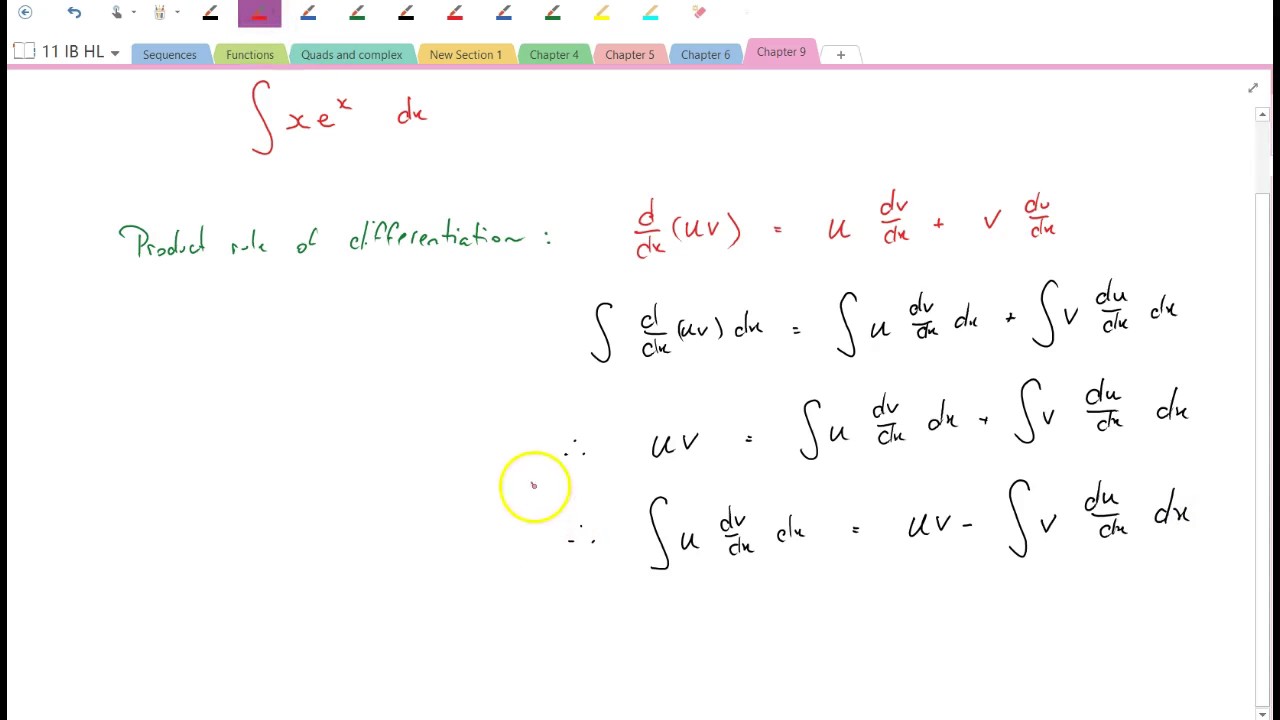 11 IB HL Sequences Functions Quads and complex New Section 1 Chapter 4 Chapter 5 Chapter 6 Chapter 9 +
∫ x eˣ dx
Product rule of differentiation : d/dx (uv) = u dv/dx + v du/dx
∫ d/dx (uv) dx = ∫ u dv/dx dx + ∫ v du/dx dx
∴ uv = ∫ u dv/dx dx + ∫ v du/dx dx
∴ ∫ u dv/dx dx = uv - ∫ v du/dx dx